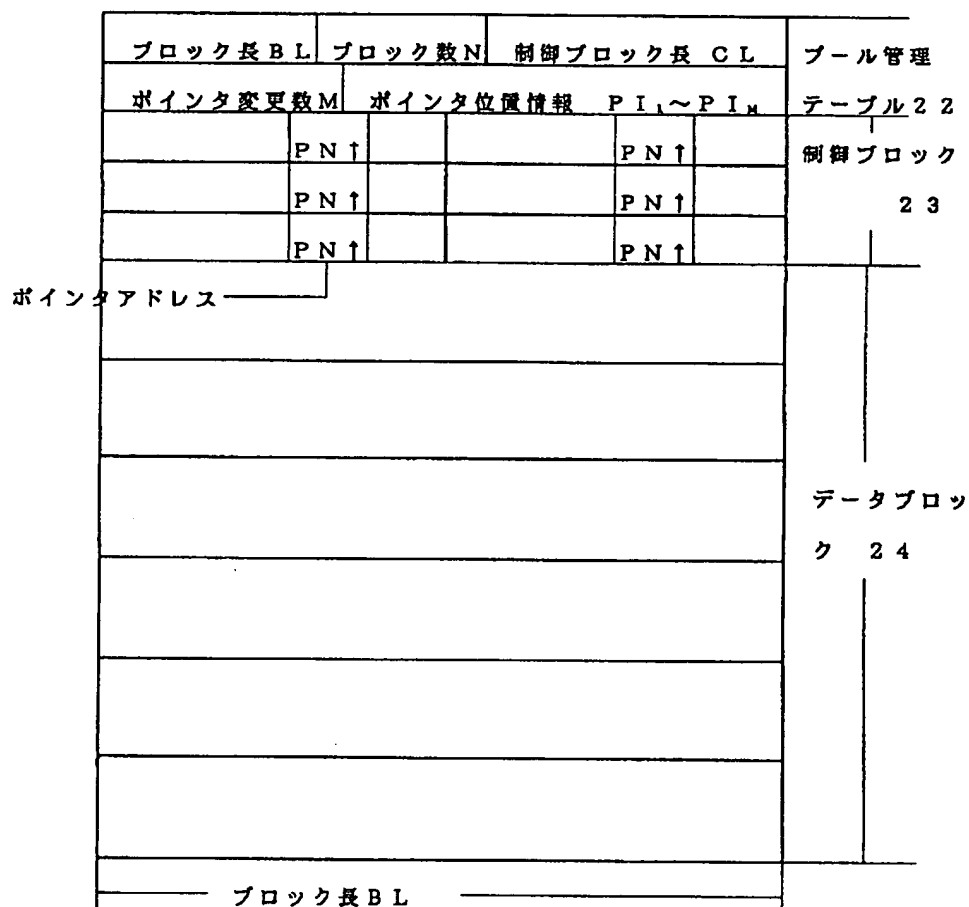 ブロック長BL ブロック数N 制御ブロック長 CL
プール管理
ポインタ変更数M ポインタ位置情報 PI₁~PIM
テーブル22
PN↑ PN↑
制御ブロック
PN↑ PN↑
23
PN↑ PN↑
ポインタアドレス
データブロッ
ク 24
ブロック長BL